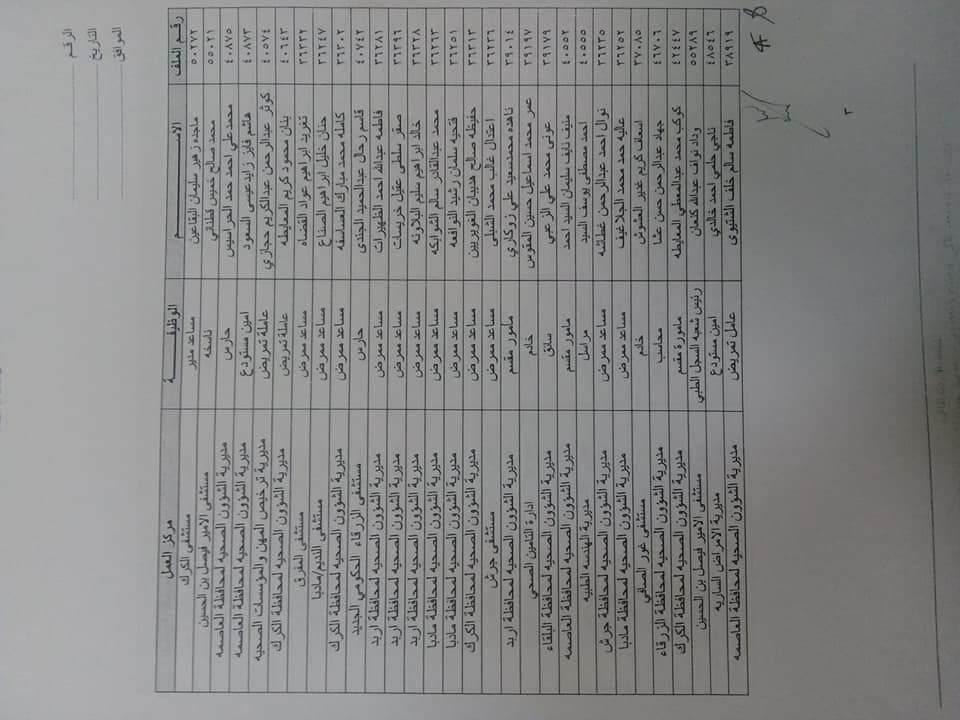 الرقم
التاريخ
الموافق
رقم الملف الاســـــم الوظيفـــــة مركز العمل
٥٠٢٧٢ ماجده زهير سليمان البقاعين مساعد مدير مستشفى الكرك
٥٥٠٢١ محمد صالح خميس قطناني ناسخه مستشفى الامير فيصل بن الحسين
٤٠٨٧٥ محمد علي احمد حمد الحراسيس حارس مديرية الشؤون الصحيه لمحافظة العاصمه
٤٠٨٧٣ هاشم فايز زايد عيسى السعود امين مستودع مديرية الشؤون الصحيه لمحافظة العاصمه
٤٠٥٧٤ كوثر عبدالرحمن عبدالكريم حجازي عاملة تمريض مديرية ترخيص المهن والمؤسسات الصحيه
٤٠٦٤٣ بنان محمود كريم المعايطه عاملة تمريض مديرية الشؤون الصحيه لمحافظة الكرك
٣٦٣٣٢ تغريد ابراهيم عواد القضاه مساعد ممرض مستشفى المفرق
٣٦٢٤٧ حنان خليل ابراهيم الصناع مساعد ممرض مستشفى النديم/مادبا
٣٦٣٠٢ كامله محمد مبارك العساسفه مساعد ممرض مديرية الشؤون الصحيه لمحافظة الكرك
٤٠٧٤٢ قاسم رحال عبدالحميد الجندي حارس مستشفى الزرقاء الحكومي الجديد
٣٦٢٨١ فاطمه عبدالله احمد الظهيرات مساعد ممرض مديرية الشؤون الصحيه لمحافظة اربد
٣٦٣٩٦ صقر سلطي عقيل خريسات مساعد ممرض مديرية الشؤون الصحيه لمحافظة اربد
٣٦٣٢٨ خالد ابراهيم سليم البلاونه مساعد ممرض مديرية الشؤون الصحيه لمحافظة اربد
٣٦٢٦٣ محمد عبدالقادر سالم الشوابكه مساعد ممرض مديرية الشؤون الصحيه لمحافظة مادبا
٣٦٢٥١ فتحيه سلمان رشيد النوافعه مساعد ممرض مديرية الشؤون الصحيه لمحافظة مادبا
٣٦٣١٣ حفيظه صالح هديبان النويريين مساعد ممرض مديرية الشؤون الصحيه لمحافظة الكرك
٣٦٢٣٦ اعتدال غالب محمد الشبلي مساعد ممرض مستشفى جرش
٣٩٠١٤ ناهده محمدسعيد علي زوكاري مامور مقسم مديرية الشؤون الصحيه لمحافظة اربد
٣٩١٩٧ عمر محمد اسماعيل حسين المقوس خادم ادارة التامين الصحي
٣٩١٧٩ عوني محمد علي الزعبي سائق مديرية الشؤون الصحيه لمحافظة البلقاء
٤٠٥٥٢ منيف نايف سليمان السيد احمد مامور مقسم مديرية الشؤون الصحيه لمحافظة العاصمه
٤٠٥٥٥ احمد مصطفى يوسف السيد مراسل مديرية الهندسه الطبيه
٣٦٢٣٥ نوال احمد عبدالرحمن غطاشه مساعد ممرض مديرية الشؤون الصحيه لمحافظة جرش
٣٦٢٥٢ عاليه حمد محمد الجلاغيف مساعد ممرض مديرية الشؤون الصحيه لمحافظة مادبا
٣٧٠٨٥ اسعاف كريم غدير العشوش خادم مستشفى غور الصافي
٤٦٧٠٦ جهاد عبدالرحمن حسن عشا محاسب مديرية الشؤون الصحيه لمحافظة الزرقاء
٤٢٤٤٧ كوكب محمد عبدالمعطي المعايطه مامورة مقسم مديرية الشؤون الصحيه لمحافظة الكرك
٥٥٢٨٩ وداد نواف عبدالله كنعان رئيس شعبه السجل الطبي مستشفى الامير فيصل بن الحسين
٤٨٥٤٦ ناجي حلمي احمد خالدي امين مستودع مديرية الامراض الساريه
٣٨٩١٩ فاطمه سالم خلف الشنيوي عامل تمريض مديرية الشؤون الصحيه لمحافظة العاصمه
٢